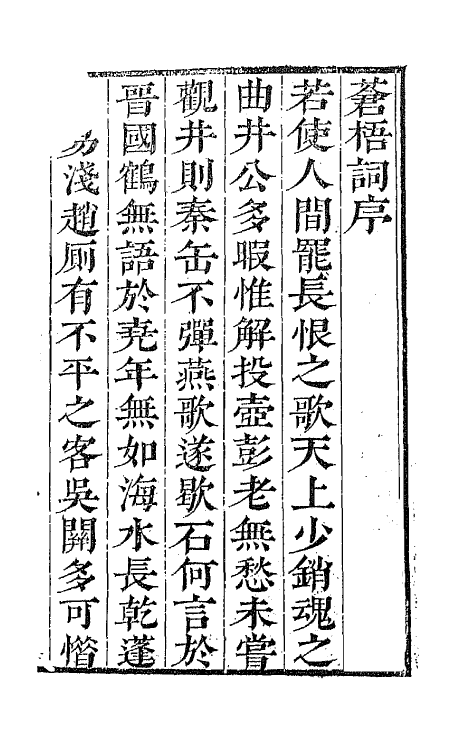 蒼梧詞序
若使人間罷長恨之歌天上少銷魂之
曲井公多暇惟解投壺彭老無愁未嘗
觀井則秦缶不彈燕歌遂歇石何言於
晉國鶴無語於堯年無如海水長乾蓬
淺趙厠有不平之客吳關多可憎